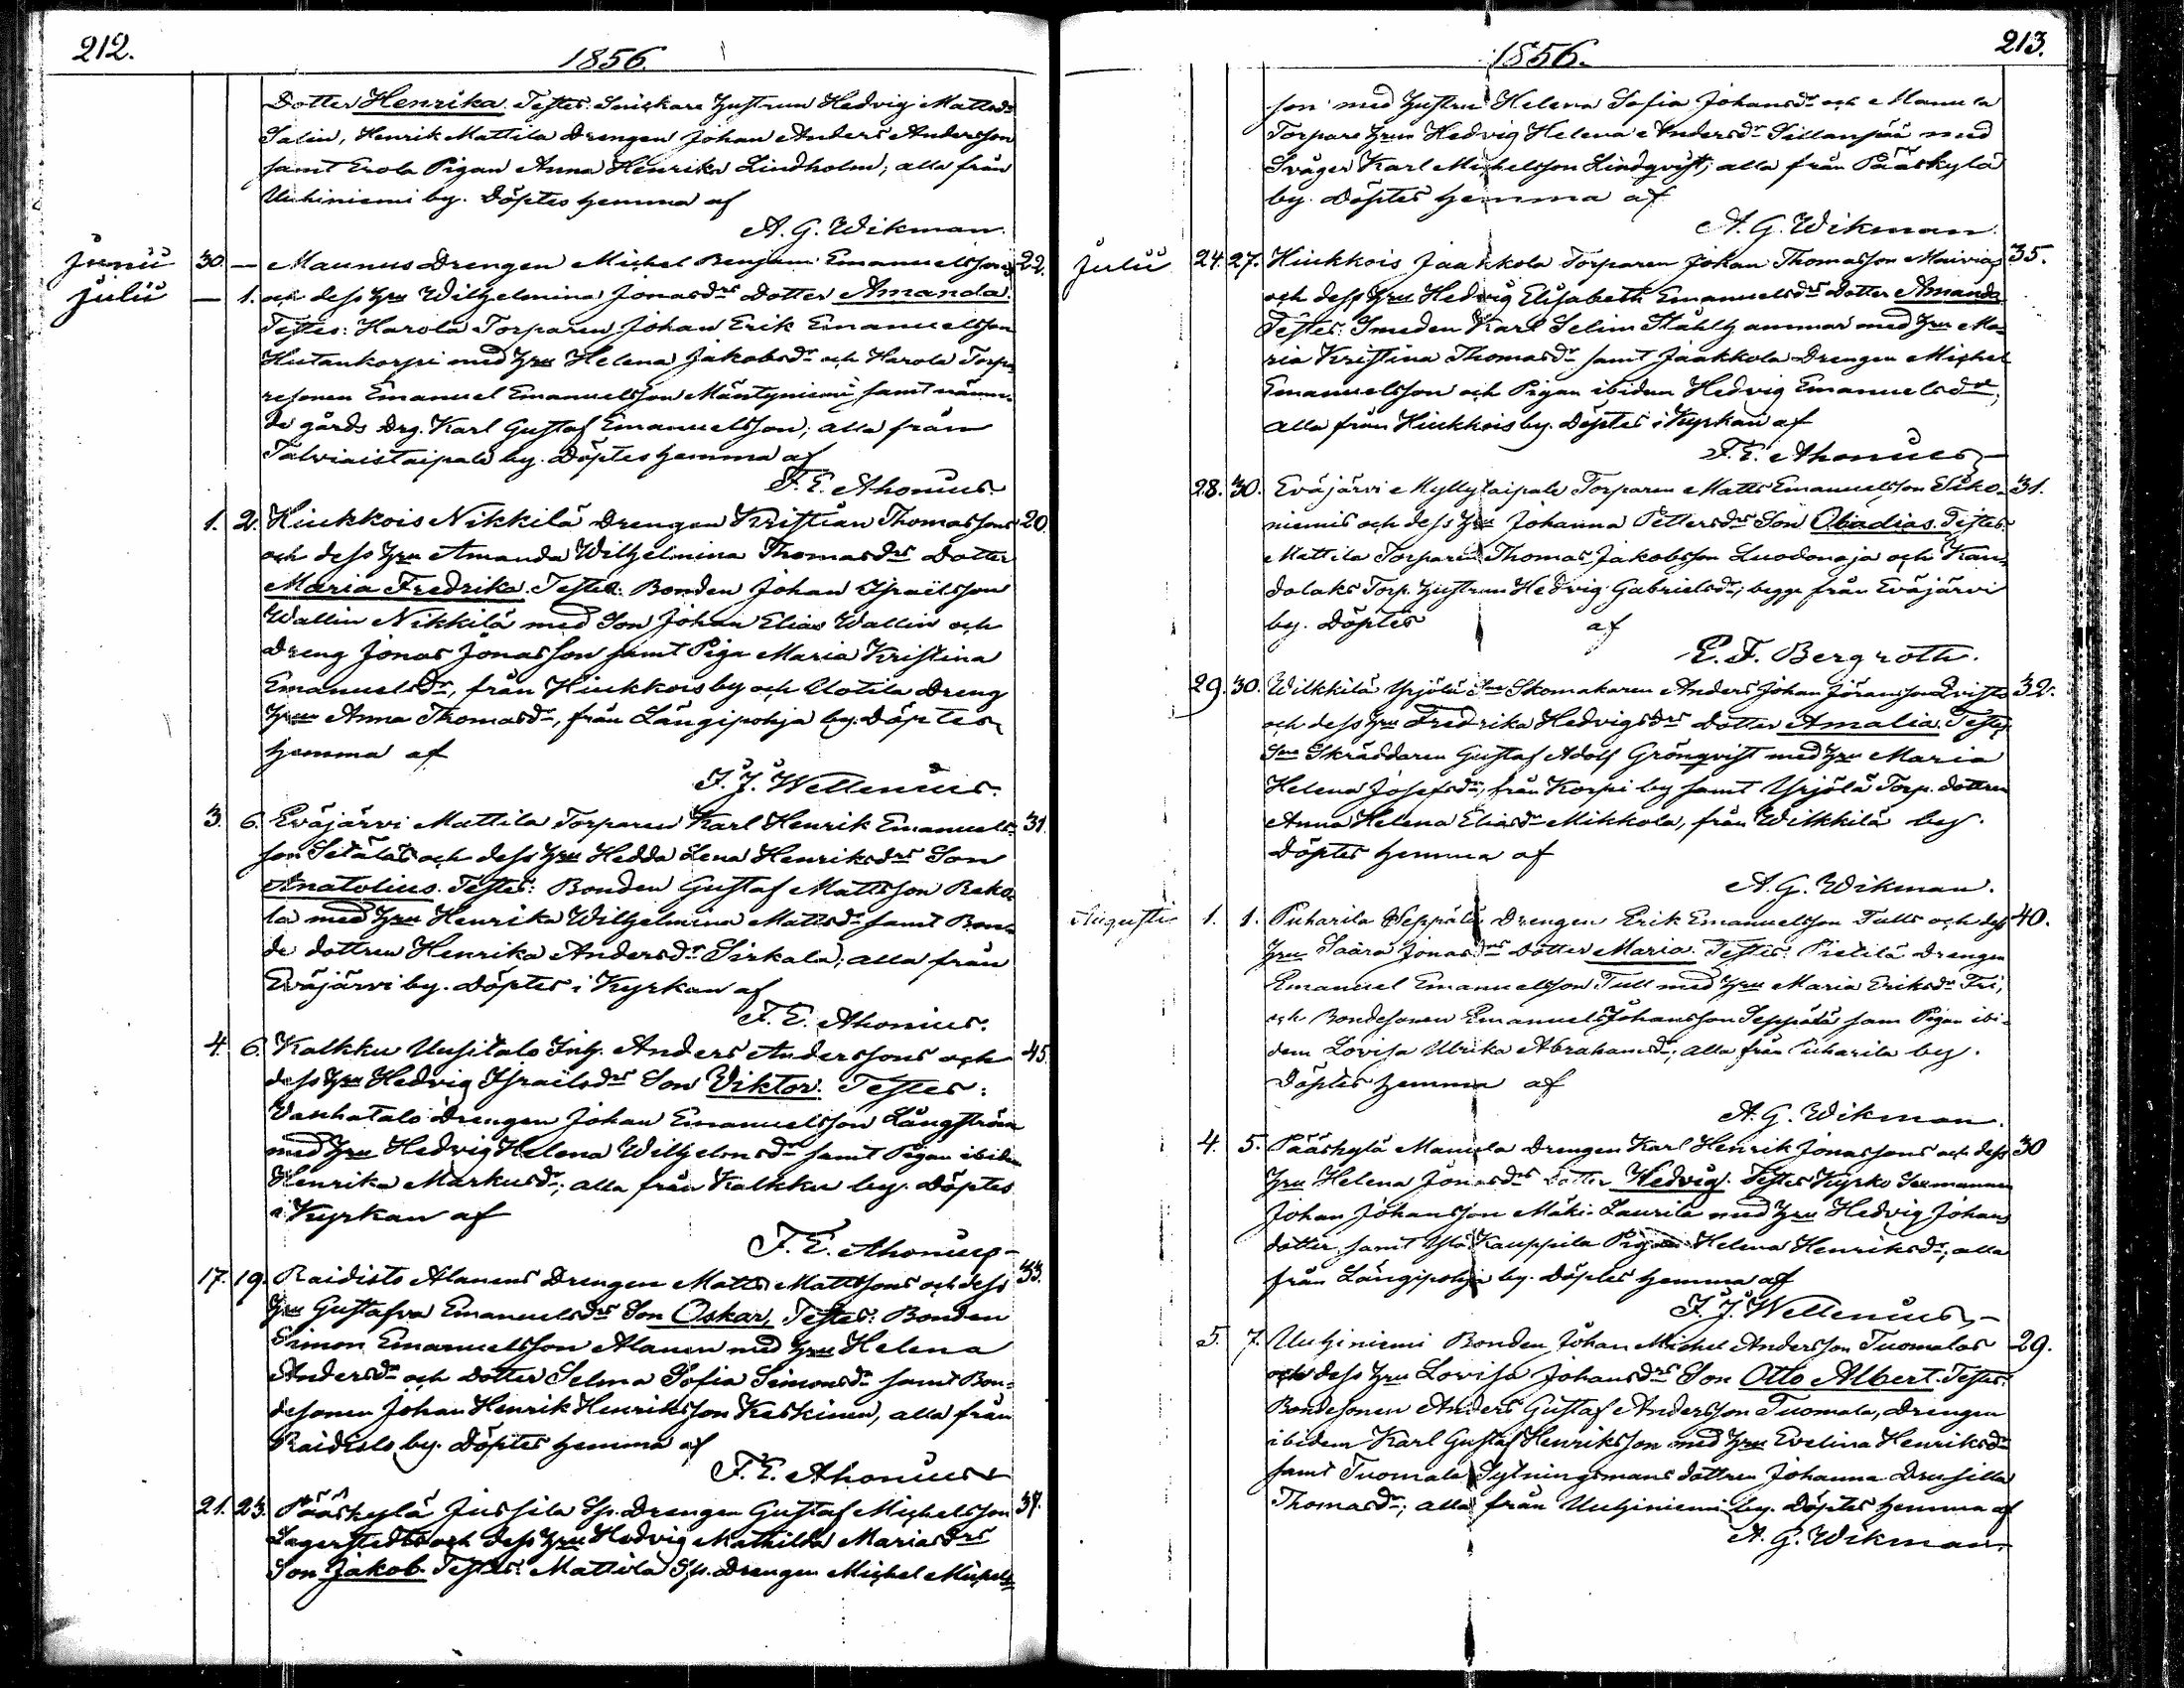 212.
1856.
Dotter Henrika. Testes: Snickare hustrun Hedvig Mattsdr
Salin, Henrik Mattila Drengen Johan Anders Andersson
samt Erola Pigan Anna Henrika Lindholm; alla från
Uuhiniemi by. Döptes hemma af
A. G. Wikman.
Junii 30. — Maunus Drengen Michel Benjam. Emanuelssons 22.
Julii — 1. och dess hru Wilhelmina Jonasdrs Dotter Amanda.
Testes: Harola Torparen Johan Erik Emanuelsson
Hutankorpi med hru Helena Jakobsdr och Harola Torpa-
resonen Emanuel Emanuelsson Mäntyniemi samt nämn-
de gårds Drg. Karl Gustaf Emanuelsson; alla från
Talviaistaipale by. Döptes hemma af
F. E. Ahonius.
1. 2. Hiukkois Nikkilä Drengen Kristian Thomassons 20.
och dess hru Amanda Wilhelmina Thomasdrs Dotter
Maria Fredrika. Testes: Bonden Johan Israëlsson
Wallin Nikkilä med Son Johan Elias Wallin och
Dreng Jonas Jonasson samt Piga Maria Kristina
Emanuelsdr, från Hiukkois by och Uotila Dreng
hrun Anna Thomasdr, från Längipohja by. Döptes
hemma af
F. J. Wellenius.
3. 6. Eväjärvi Mattila Torparen Karl Henrik Emanuels- 31.
son Setäläs och dess hru Hedda Lena Henriksdrs Son
Anatolius. Testes: Bonden Gustaf Mattsson Reko-
la med hru Henrika Wilhelmina Mattsdr samt Bon-
de dottren Henrika Andersdr Sirkala; alla från
Eväjärvi by. Döptes i Kyrkan af
F. E. Ahonius.
4. 6. Kalkku Uusitalo Inh. Anders Anderssons och 45.
dess hru Hedvig Israilsdrs Son Viktor. Testes:
Vanhatalo Drengen Johan Emanuelsson Långström
med hru Hedvig Helena Wilhelmsdr samt Pigan ibidem
Henrika Markusdr; alla från Kalkku by. Döptes
i Kyrkan af
F. E. Ahonius
17. 19. Raidisto Alanens Drengen Matts Mattssons och dess 33.
hru Gustafva Emanuelsdrs Son Oskar. Testes: Bonden
Simon Emanuelsson Alanen med hru Helena
Andersdr och dotter Selma Sofia Simonsdr samt Bon-
desonen Johan Henrik Henriksson Keskinen, alla från
Raidisto by. Döptes hemma af
F. E. Ahonius
21. 23. Pääskylä Jussila Sp. Drengen Gustaf Michelsson 37.
Lagerstedts och dess hru Hedvig Mathilda Mariasdrs
Son Jakob. Testes: Mattila Sp. Drengen Michel Michels-
213.
1856.
son med hustru Helena Sofia Johansdr och Manula
Torpare hrun Hedvig Helena Andersdr Sillanpää med
Svåger Karl Michelsson Lindqvist; alla från Pääskylä
by. Döptes hemma af
A. G. Wikman.
Julii 24. 27. Hiukkois Jaakkola Torparen Johan Thomasson 35.
och dess hru Hedvig Elisabeth Emanuelsdrs Dotter Amanda.
Testes: Smeden Karl Selim Stålhammar med hru Ma-
ria Kristina Thomasdr samt Jaakkola Drengen Michel
Emanuelsson och Pigan ibidem Hedvig Emanuelsdr;
alla från Hiukkois by. Döptes i Kyrkan af
F. E. Ahonius
28. 30. Eväjärvi Myllytaipale Torparen Matts Emanuelsson Siko- 31.
niemis och dess hru Johanna Pettersdrs Son Obadias. Testes:
Mattila Torparen Thomas Jakobsson Luodonoja och Kan-
dolaks Torp. hustrun Hedvig Gabrielsdr; begge från Eväjärvi
by. Döptes af
E. F. Bergroth.
29. 30. Wilkkilä Yrjölä Sne Skomakaren Anders Johan Göransson Qvists 32.
och dess hru Fredrika Hedvigsdrs Dotter Amalia. Testes:
Sne Skräddaren Gustaf Adolf Grönqvist med hru Maria
Helena Josefsdr, från Korpi by samt Yrjölä Torp. dottren
Anna Helena Eliasdr Mikkola, från Wilkkilä by.
Döptes hemma af
A. G. Wikman.
Augusti 1. 1. Puharila Seppälä Drengen Erik Emanuelsson Tulls och dess 40.
hru Saara Jonasdrs Dotter Maria. Testes: Pietilä Drengen
Emanuel Emanuelsson Tull med hru Maria Eriksdr Fri,
och Bondesonen Emanuel Johansson Seppälä sam Pigan ibi-
dem Lovisa Ulrika Abrahamsdr; alla från Puharila by.
Döptes hemma af
A. G. Wikman.
4. 5. Pääskylä Manula Drengen Karl Henrik Jonassons och dess 30
hru Helena Jonasdrs Dotter Hedvig. Testes Kyrko Sexmannen
Johan Johansson Mäki-Laurila med hru Hedvig Johans
dotter, samt Ylä Kauppila Pigan Helena Henriksdr; alla
från Längipohja by. Döptes hemma af
F. J. Wellenius
5. 7. Uuhiniemi Bonden Johan Michel Andersson Tuomalas 29.
och dess hru Lovisa Johansdrs Son Otto Albert. Testes:
Bondesonen Anders Gustaf Andersson Tuomala, Drengen
ibidem Karl Gustaf Henriksson med hru Evelina Henriksdr
samt Tuomala Sytningsmans dottren Johanna Drusilla
Thomasdr; alla från Uuhiniemi by. Döptes hemma af
A. G. Wikman.